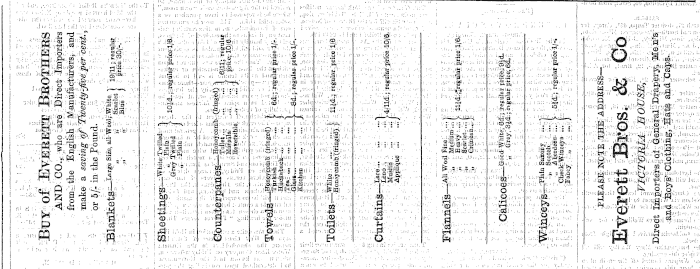 BUY of EVERETT BROTHERS
AND CO., who are Direct Importers
from the English Manufacturers, and
make a saving of Twenty-five per cent.,
or 5/- in the Pound.
Blankets—Large Size, all Wool, White
19/11; regular
price 30/-
Sheetings—White Twilled
" Plain
Grey Twilled
" Plain
10½d.; regular price 1/6.
Counterpanes—Honeycomb (fringed)
6/11; regular
price, 10/6.
Towels—Honeycomb (fringed)
Turkish
Huckaback
Tea
Glass
Kitchen
6d.; regular price 1/-.
3d.; regular price 1/-.
Toilets—White
Honeycomb (fringed)
11½d.; regular price 1/6
Curtains—Lace
Muslin
Applique
4/11d.; regular price 10/6.
Flannels—All Wool Fine
" Medium
" Heavy
" Scarlet
" Crimson
regular price 1/6.
Calicoes—Good White, 6d.; regular price, 9½d.
" Grey 3½d.; regular price, 6d.
Winceys—Plain Santry
" Scotch
" Aberdeen
Check Winceys
Fancy
5½d.; regular price 1/-.
PLEASE NOTE THE ADDRESS—
Everett Bros. & Co
VICTORIA HOUSE,
Direct Importers of General Drapery, Men's
and Boys' Clothing, Hats and Caps.